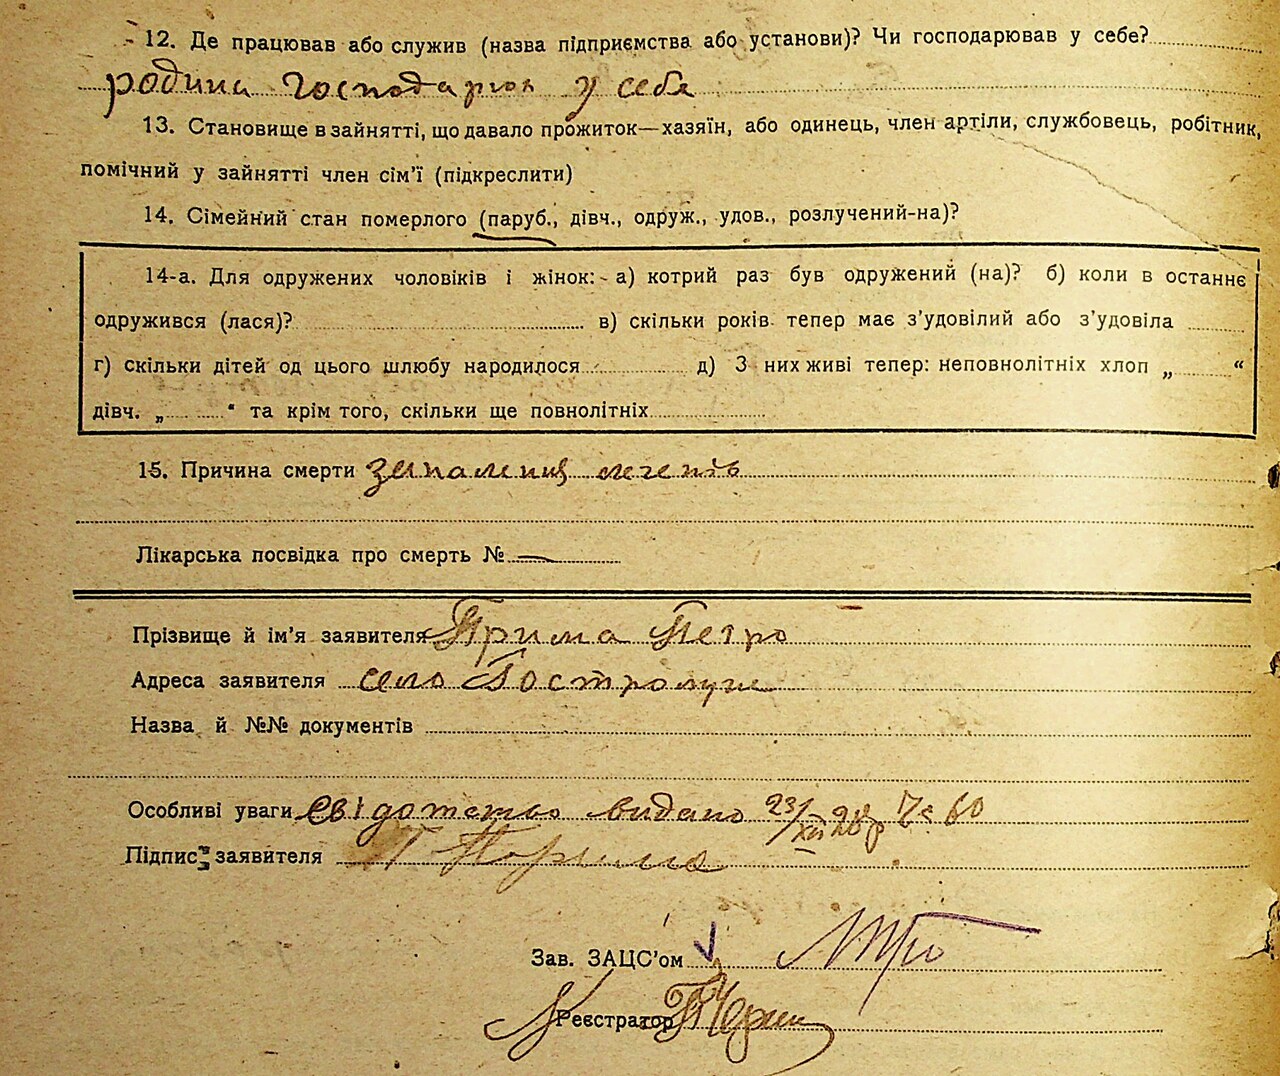 12. Де працював або служив (назва підприємства або установи)? Чи господарював у себе?
родина господарює у себе
13. Становище в зайнятті, що давало прожиток—хазяїн, або одинець, член артіли, службовець, робітник,
помічний у зайнятті член сім'ї (підкреслити)
14. Сімейний стан померлого (паруб., дівч., одруж., удов., розлучений-на)?
14-а. Для одружених чоловіків і жінок: а) котрий раз був одружений (на)? б) коли в останнє
одружився (лася)? в) скільки років тепер має з'удовілий або з'удовіла
г) скільки дітей од цього шлюбу народилося д) З них живі тепер: неповнолітніх хлоп „ “
дівч. „ “ та крім того, скільки ще повнолітніх
15. Причина смерти запалення легенів
Лікарська посвідка про смерть № —
Прізвище й ім'я заявителя Прима Петро
Адреса заявителя село Гостролуче
Назва й №№ документів
Особливі уваги Свідотство видано 23/XII 28 р № 60
Підпис заявителя П Прима
Зав. ЗАЦС'ом
Реєстратор